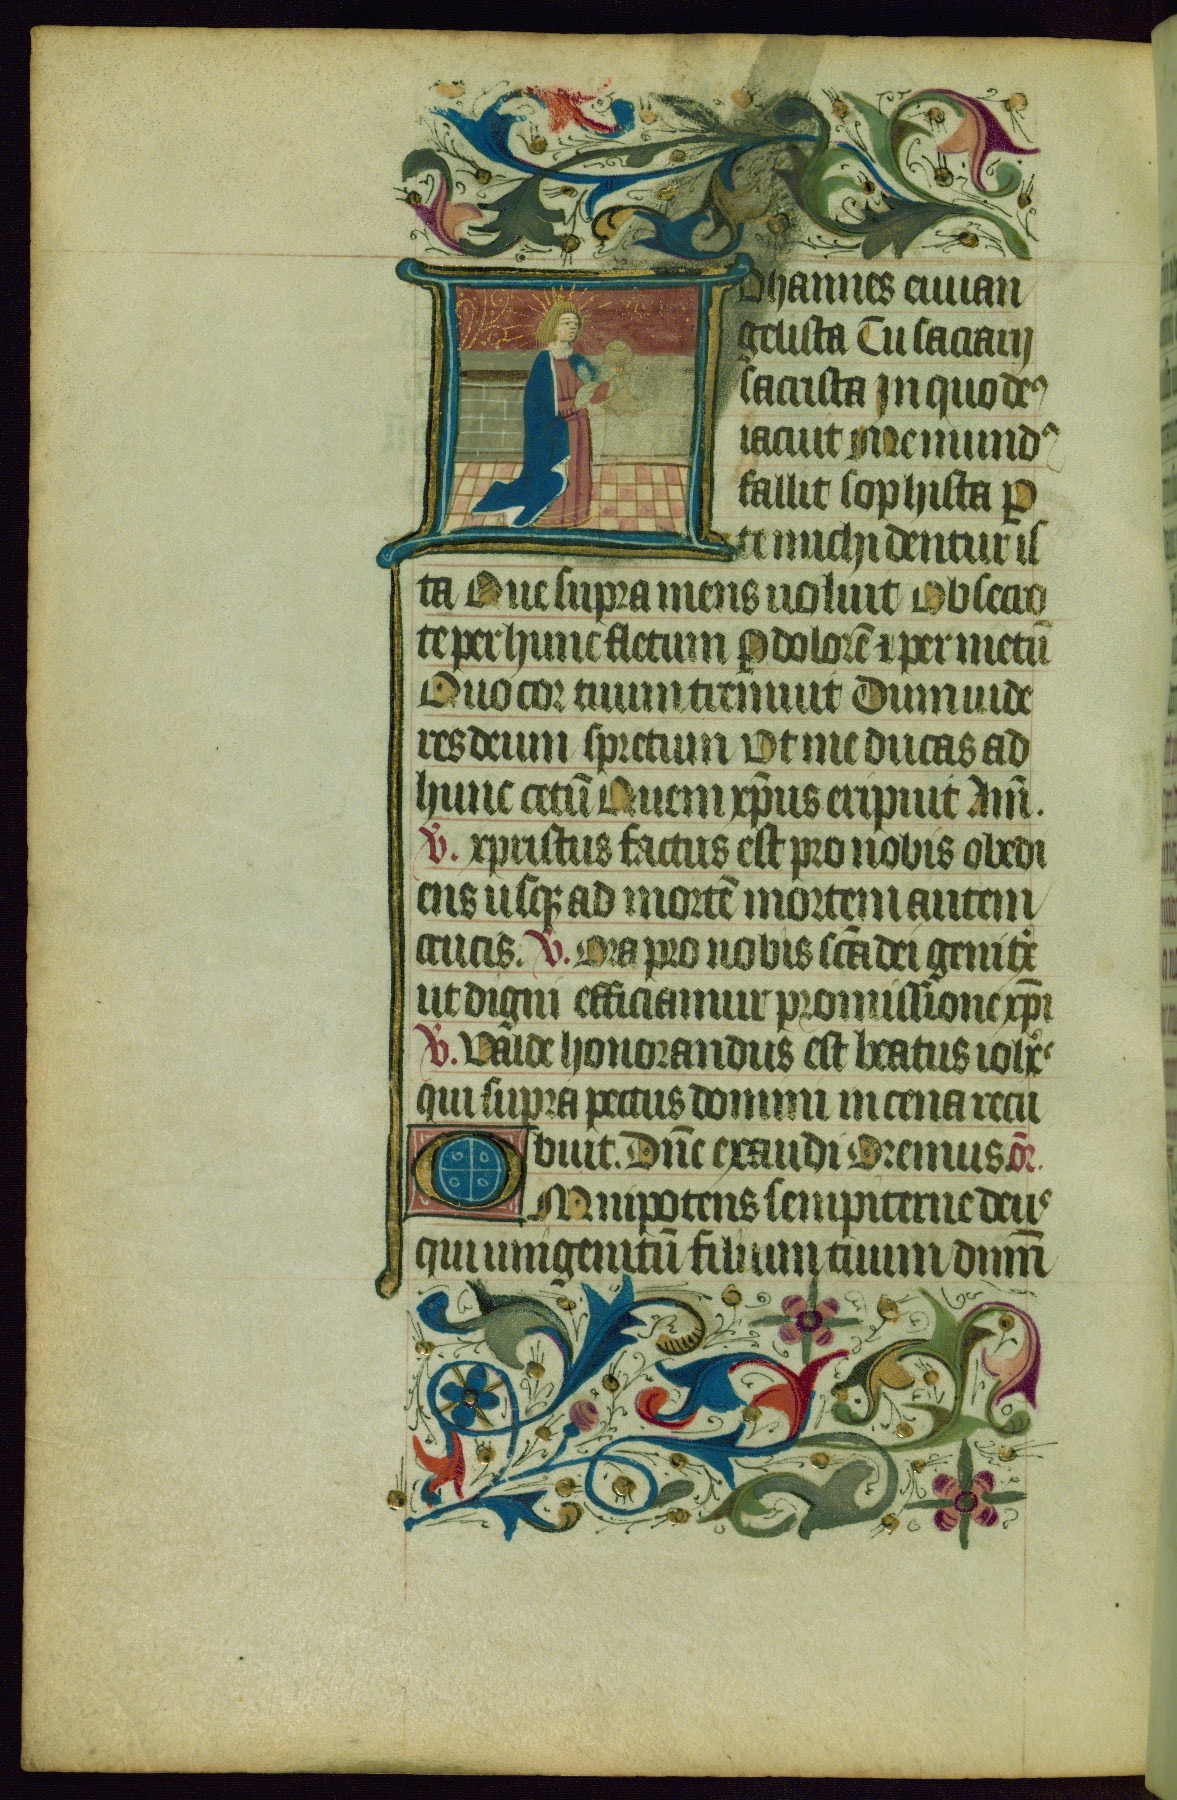 Iohannes euuan
gelista Tu sacrarij
sacrista In quo de⁹
iacuit Me mund⁹
fallit sophista ꝑ
te michi dentur is
ta Que supra mens uoluit Obsecro
te per hunc fletum ꝑ dolorē ⁊ per metū
Quo cor tuum tremuit Dum uide
res deum spretum Ut me ducas ad
hunc cetū Quem xp̄us eripuit Am̄.
V. xpristus factus est pro nobis obedi
ens usqꝫ ad mortē mortem autem
crucis. V. Ora pro nobis sc̄a dei genitx̄
ut digni efficiamur promissione xp̄i
V. Val̄de honorandus est beatus ioh̄es
qui supra pectus domini in cena recu
buit. Dn̄e exaudi Oremus or̄.
OMnipotens sempiterne deus
qui unigenitū filium tuum dnm̄